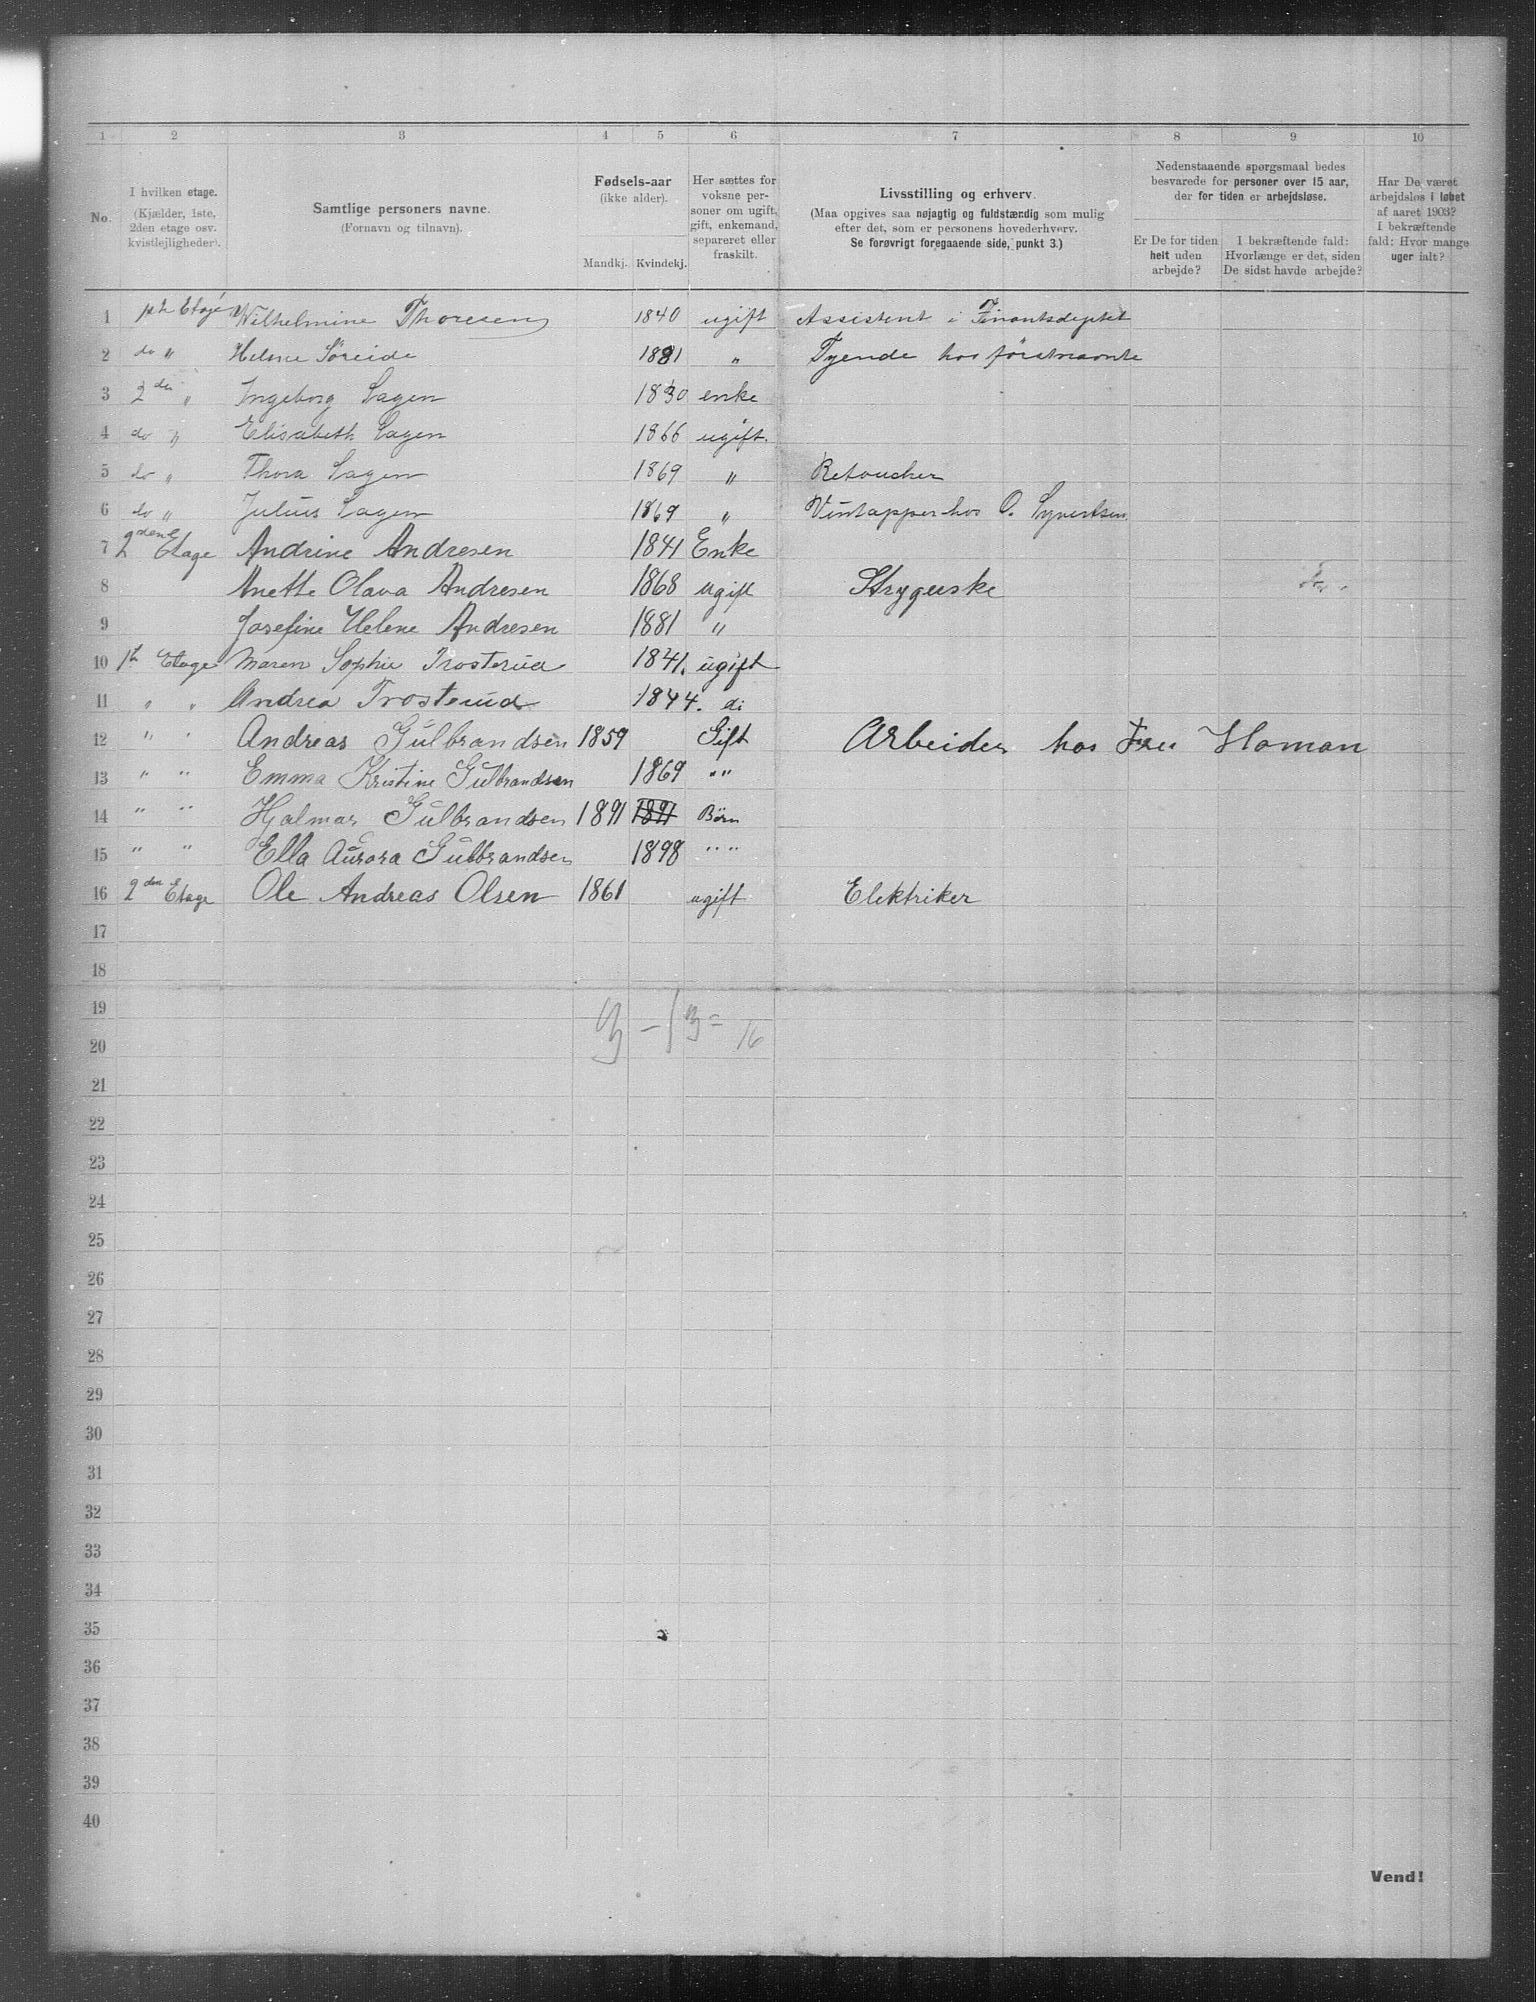 1 2 3 4 5 6 7 8 9 10
No.
I hvilken etage.
(Kjælder, 1ste,
2den etage osv.
kvistlejligheder).
Samtlige personers navne.
(Fornavn og tilnavn).
Fødsels-aar
(ikke alder).
Mandkj. Kvindekj.
Her sættes for
voksne per-
soner om ugift,
gift, enkemand,
separeret eller
fraskilt.
Livsstilling og erhverv.
(Maa opgives saa nøjagtig og fuldstændig som mulig
efter det, som er personens hovederhverv.
Se forøvrigt foregaaende side, punkt 3.)
Nedenstaaende spørgsmaal bedes
besvarede for personer over 15 aar,
der for tiden er arbejdsløse.
Er De for tiden
helt uden
arbejde?
I bekræftende fald:
Hvorlænge er det, siden
De sidst havde arbejde?
Har De været
arbejdsløs i løbet
af aaret 1903?
I bekræftende
fald: Hvor mange
uger ialt?
1 Etage Wilhelmine Thoresen 1840 ugift Assistent i Finantsdeptet
2 do " Helene Søreide 1881 " Tyende hos førstnævnte
3 2den " Ingeborg Sagen 1830 enke
4 do " Elisabeth Sagen 1866 ugift.
5 do " Thora Sagen 1869 " Retoucher
6 do " Julius Sagen 1869 " Vintapper hos O. Syvertsen
7 2den Etage Andrine Andresen 1841 Enke
8 Anette Olava Andresen 1868 ugift Strygerske
9 Josefine Helene Andresen 1881 "
10 1st Etage Maren Sophie Trosterud 1841. ugift
11 " " Andrea Trosterud 1844. do
12 " " Andreas Gulbrandsen 1859 Gift Arbeider hos Fru Homan
13 " " Emma Kristine Gulbrandsen 1869 " "
14 " " Hjalmar Gulbrandsen 1891 1891 Børn
15 " " Ella Aurora Gulbrandsen 1898 " "
16 2den Etage Ole Andreas Olsen 1861 ugift Elektriker
17
18
19
3 - 13 = 16
20
21
22
23
24
25
26
27
28
29
30
31
32
33
34
35
36
37
38
39
40
Vend!